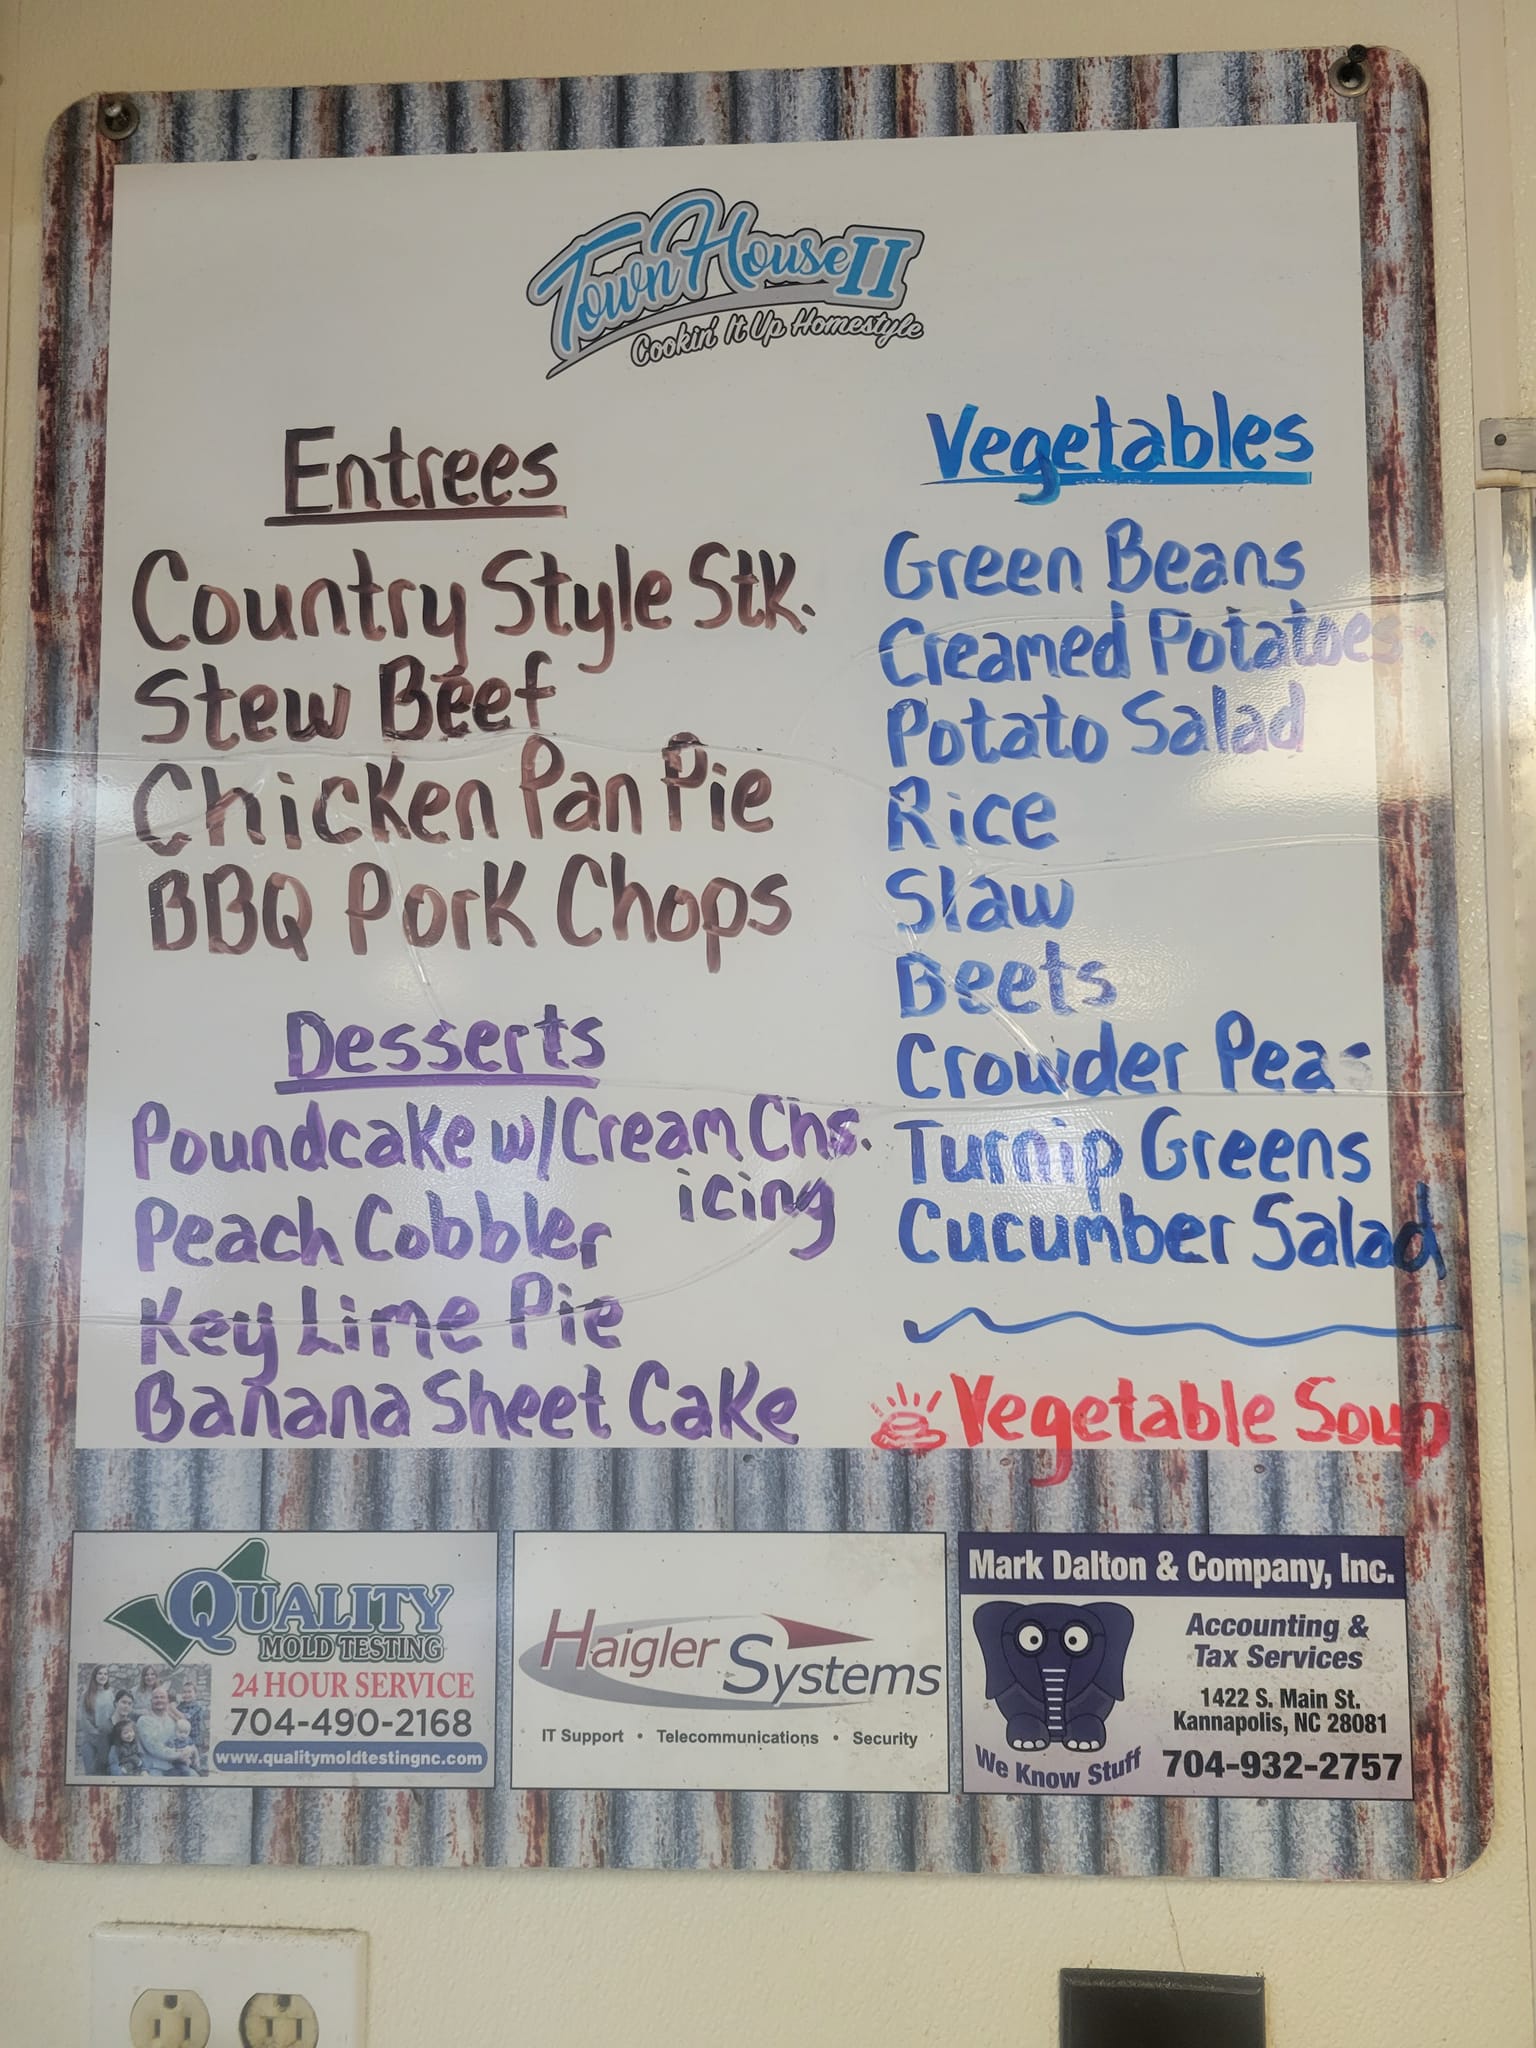 Town House II
Cookin' It Up Homestyle
Entrees
Country Style Stk.
Stew Beef
Chicken Pan Pie
BBQ Pork Chops
Desserts
Poundcake w/Cream Chs.
icing
Peach Cobbler
Key Lime Pie
Banana Sheet Cake
Vegetables
Green Beans
Creamed Potatoes
Potato Salad
Rice
Slaw
Beets
Crowder Peas
Turnip Greens
Cucumber Salad
Vegetable Soup
QUALITY
MOLD TESTING
24 HOUR SERVICE
704-490-2168
www.qualitymoldtestingnc.com
Haigler Systems
IT Support • Telecommunications • Security
Mark Dalton & Company, Inc.
Accounting &
Tax Services
1422 S. Main St.
Kannapolis, NC 28081
We Know Stuff
704-932-2757